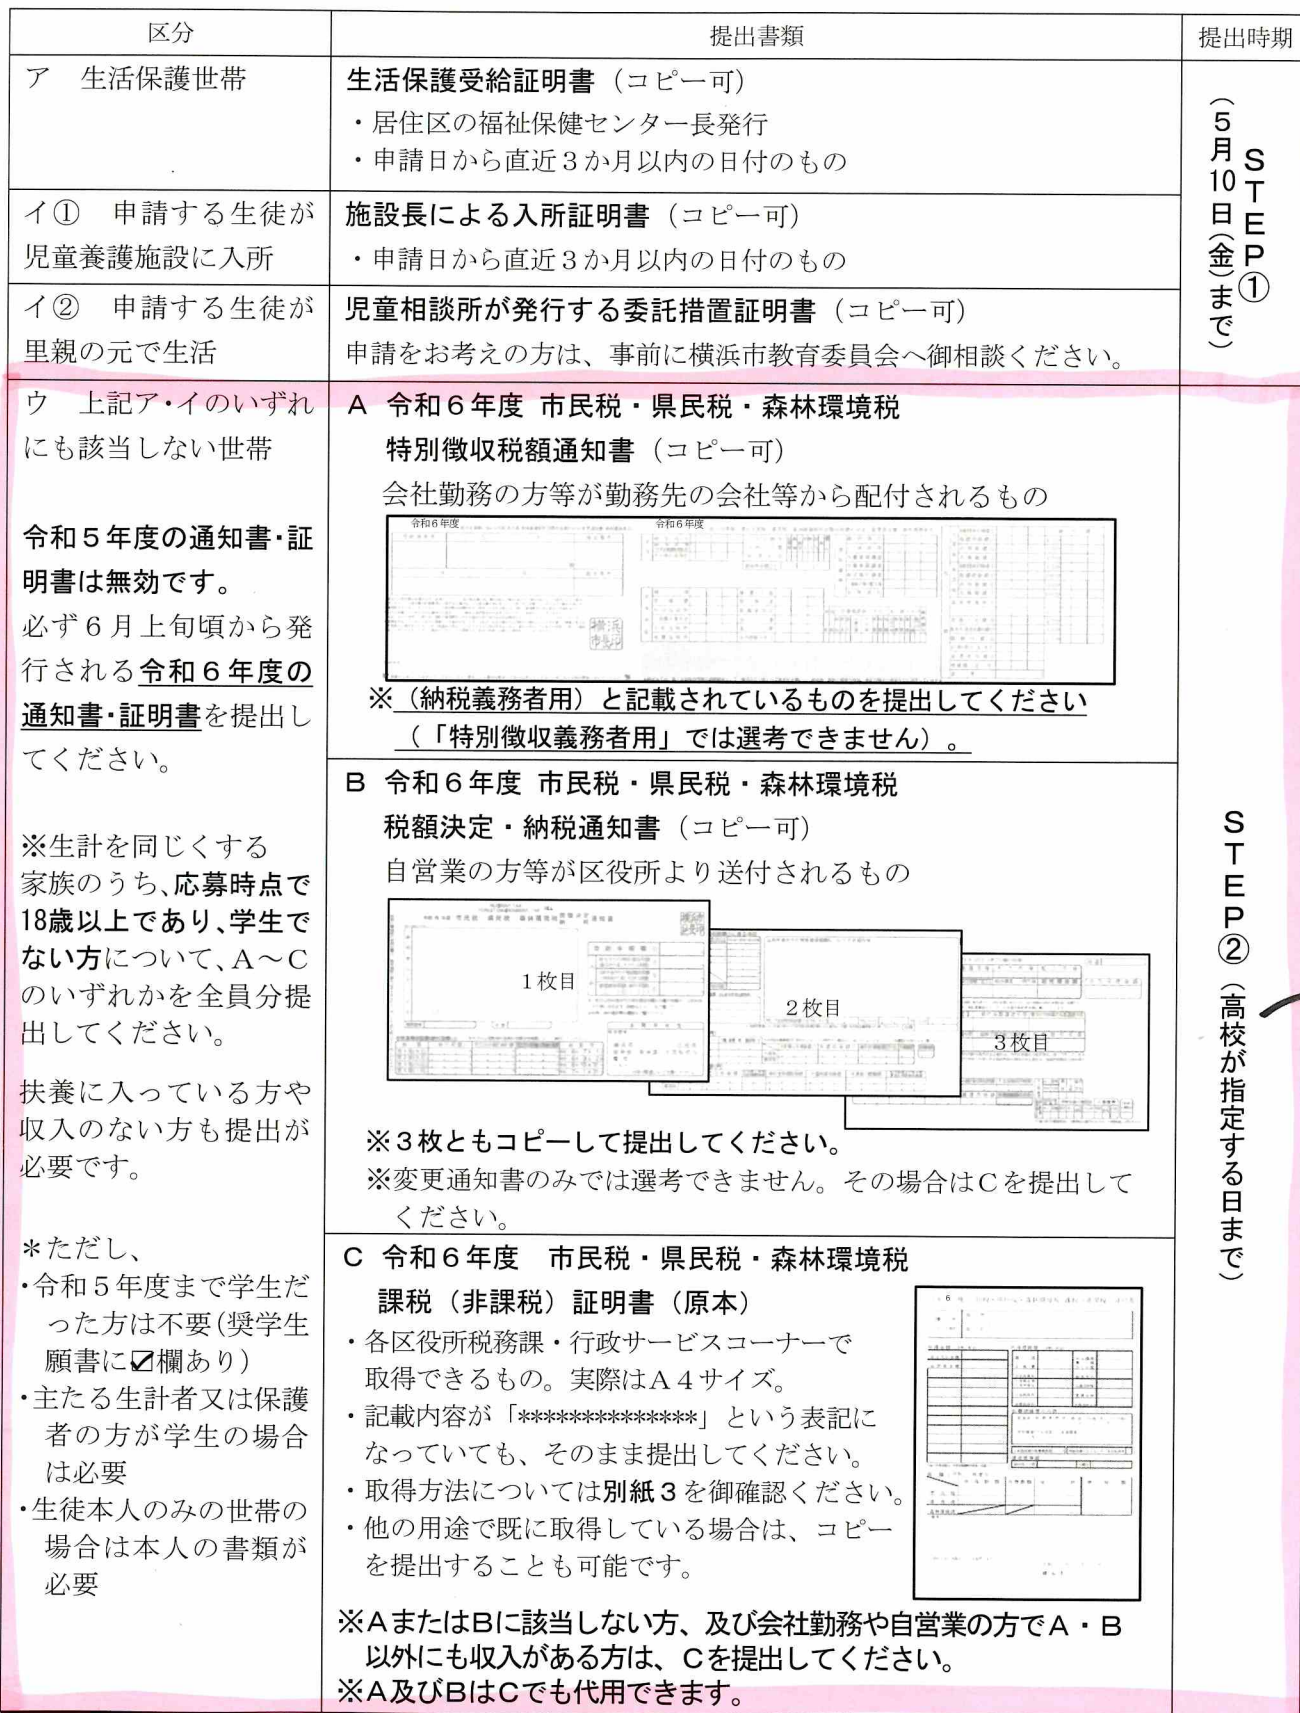 区分
提出書類
提出時期
ア 生活保護世帯
生活保護受給証明書（コピー可）
・居住区の福祉保健センター長発行
・申請日から直近３か月以内の日付のもの
イ① 申請する生徒が
児童養護施設に入所
施設長による入所証明書（コピー可）
・申請日から直近３か月以内の日付のもの
イ② 申請する生徒が
里親の元で生活
児童相談所が発行する委託措置証明書（コピー可）
申請をお考えの方は、事前に横浜市教育委員会へ御相談ください。
ＳＴＥＰ①
（５月10日（金）まで）
ウ 上記ア・イのいずれ
にも該当しない世帯
令和５年度の通知書・証
明書は無効です。
必ず６月上旬頃から発
行される令和６年度の
通知書・証明書を提出し
てください。
※生計を同じくする
家族のうち、応募時点で
18歳以上であり、学生で
ない方について、Ａ～Ｃ
のいずれかを全員分提
出してください。
扶養に入っている方や
収入のない方も提出が
必要です。
＊ただし、
・令和５年度まで学生だ
った方は不要（奨学生
願書に☑欄あり）
・主たる生計者又は保護
者の方が学生の場合
は必要
・生徒本人のみの世帯の
場合は本人の書類が
必要
Ａ 令和６年度 市民税・県民税・森林環境税
特別徴収税額通知書（コピー可）
会社勤務の方等が勤務先の会社等から配付されるもの
令和６年度
令和６年度
※（納税義務者用）と記載されているものを提出してください
（「特別徴収義務者用」では選考できません）。
Ｂ 令和６年度 市民税・県民税・森林環境税
税額決定・納税通知書（コピー可）
自営業の方等が区役所より送付されるもの
１枚目
２枚目
３枚目
※３枚ともコピーして提出してください。
※変更通知書のみでは選考できません。その場合はＣを提出して
ください。
Ｃ 令和６年度 市民税・県民税・森林環境税
課税（非課税）証明書（原本）
・各区役所税務課・行政サービスコーナーで
取得できるもの。実際はＡ４サイズ。
・記載内容が「**************」という表記に
なっていても、そのまま提出してください。
・取得方法については別紙３を御確認ください。
・他の用途で既に取得している場合は、コピー
を提出することも可能です。
※ＡまたはＢに該当しない方、及び会社勤務や自営業の方でＡ・Ｂ
以外にも収入がある方は、Ｃを提出してください。
※Ａ及びＢはＣでも代用できます。
ＳＴＥＰ②（高校が指定する日まで）